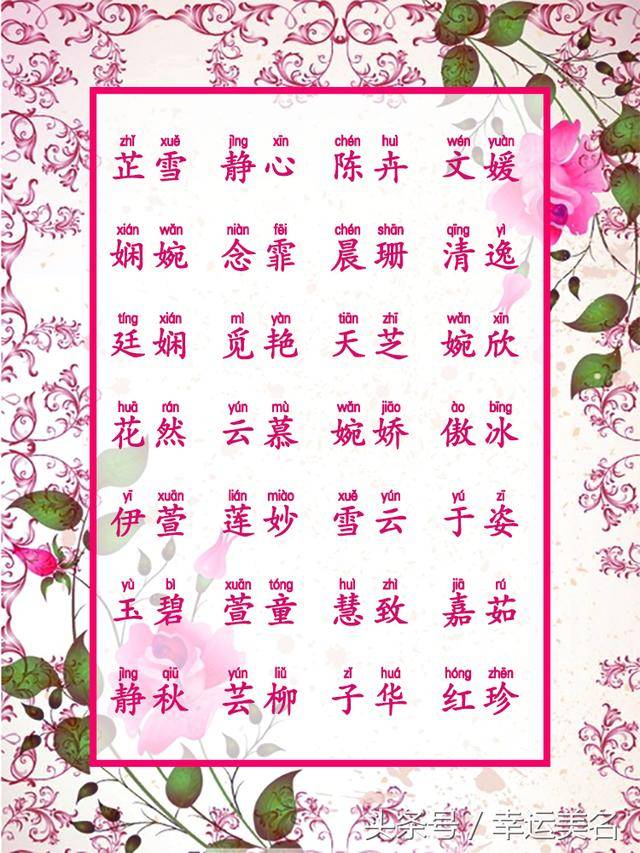 zhǐ xuě jìng xīn chén huì wén yuàn
芷雪 静心 陈卉 文媛
xián wǎn niàn fēi chén shān qīng yì
娴婉 念霏 晨珊 清逸
tíng xián mì yàn tiān zhī wǎn xīn
廷娴 觅艳 天芝 婉欣
huā rán yún mù wǎn jiāo ào bīng
花然 云慕 婉娇 傲冰
yī xuān lián miào xuě yún yú zī
伊萱 莲妙 雪云 于姿
yù bì xuān tóng huì zhì jiā rú
玉碧 萱童 慧致 嘉茹
jìng qiū yún liǔ zǐ huá hóng zhēn
静秋 芸柳 子华 红珍
头条号 / 幸运美名